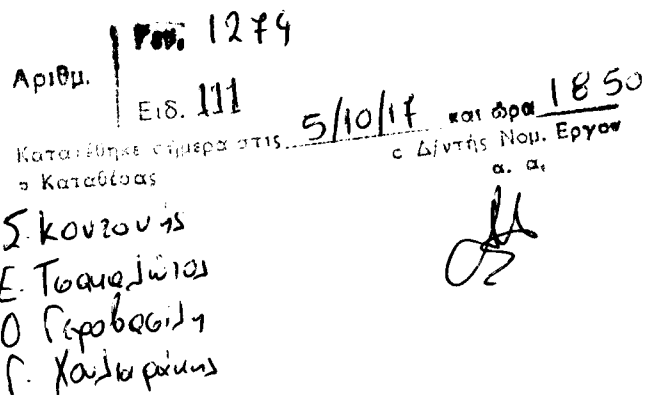 Αριθμ.
Γεν. 1274
Ειδ. 111
Κατατέθηκε σήμερα στις 5/10/17 και ώρα 1850
ο Καταθέσας
ο Δ/ντής Νομ. Εργου
α. α.
Σ. Κοντονής
Ε. Τσακαλώτος
Ο Γεροβασίλη
Γ. Χουλιαράκης